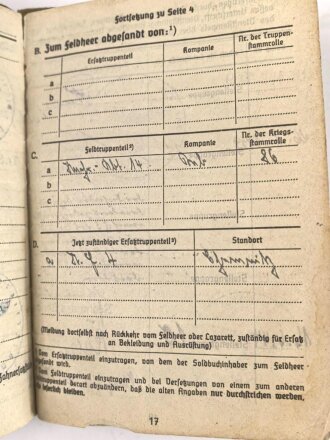 Fortsetzung zu Seite 4
B. Zum Feldheer abgesandt von:¹)
Ersatztruppenteil Kompanie Nr. der Truppenstammrolle
a
b
c
C. Feldtruppenteil²) Kompanie Nr. der Kriegsstammrolle
a Abt. 14 86
b
c
D. Jetzt zuständiger Ersatztruppenteil²) Standort
a 4
(Meldung dortselbst nach Rückkehr vom Feldheer oder Lazarett, zuständig für Ersatz
an Bekleidung und Ausrüstung)
Vom Ersatztruppenteil einzutragen, von dem der Soldbuchinhaber zum Feldheer
Vom Feldtruppenteil einzutragen und bei Versetzungen von einem zum anderen
derart abzuändern, daß die alten Angaben nur durchstrichen werden,
leserlich bleiben.
17